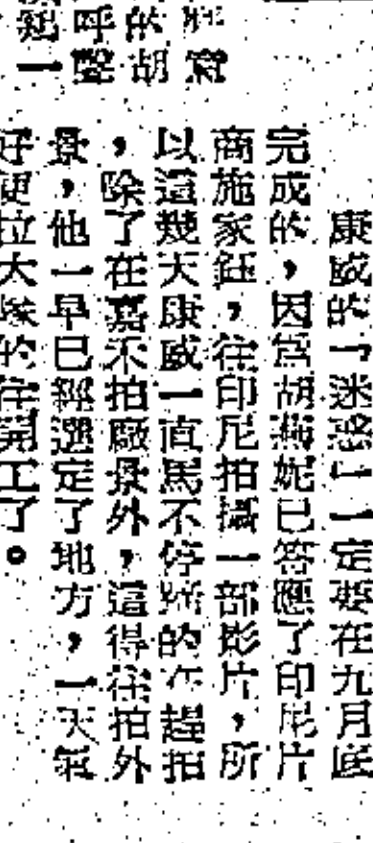 康威的「迷惑」一定要在九月底
完成的，因為胡燕妮已答應了印尼片
商施家鈺，往印尼拍攝一部影片，所
以這幾天康威一直馬不停蹄的在趕拍
，除了在嘉禾拍廠景外，還得往拍外
景，他一早已經選定了地方，一天氣
好便拉大隊的往開工了。
的胡
呼聲
一